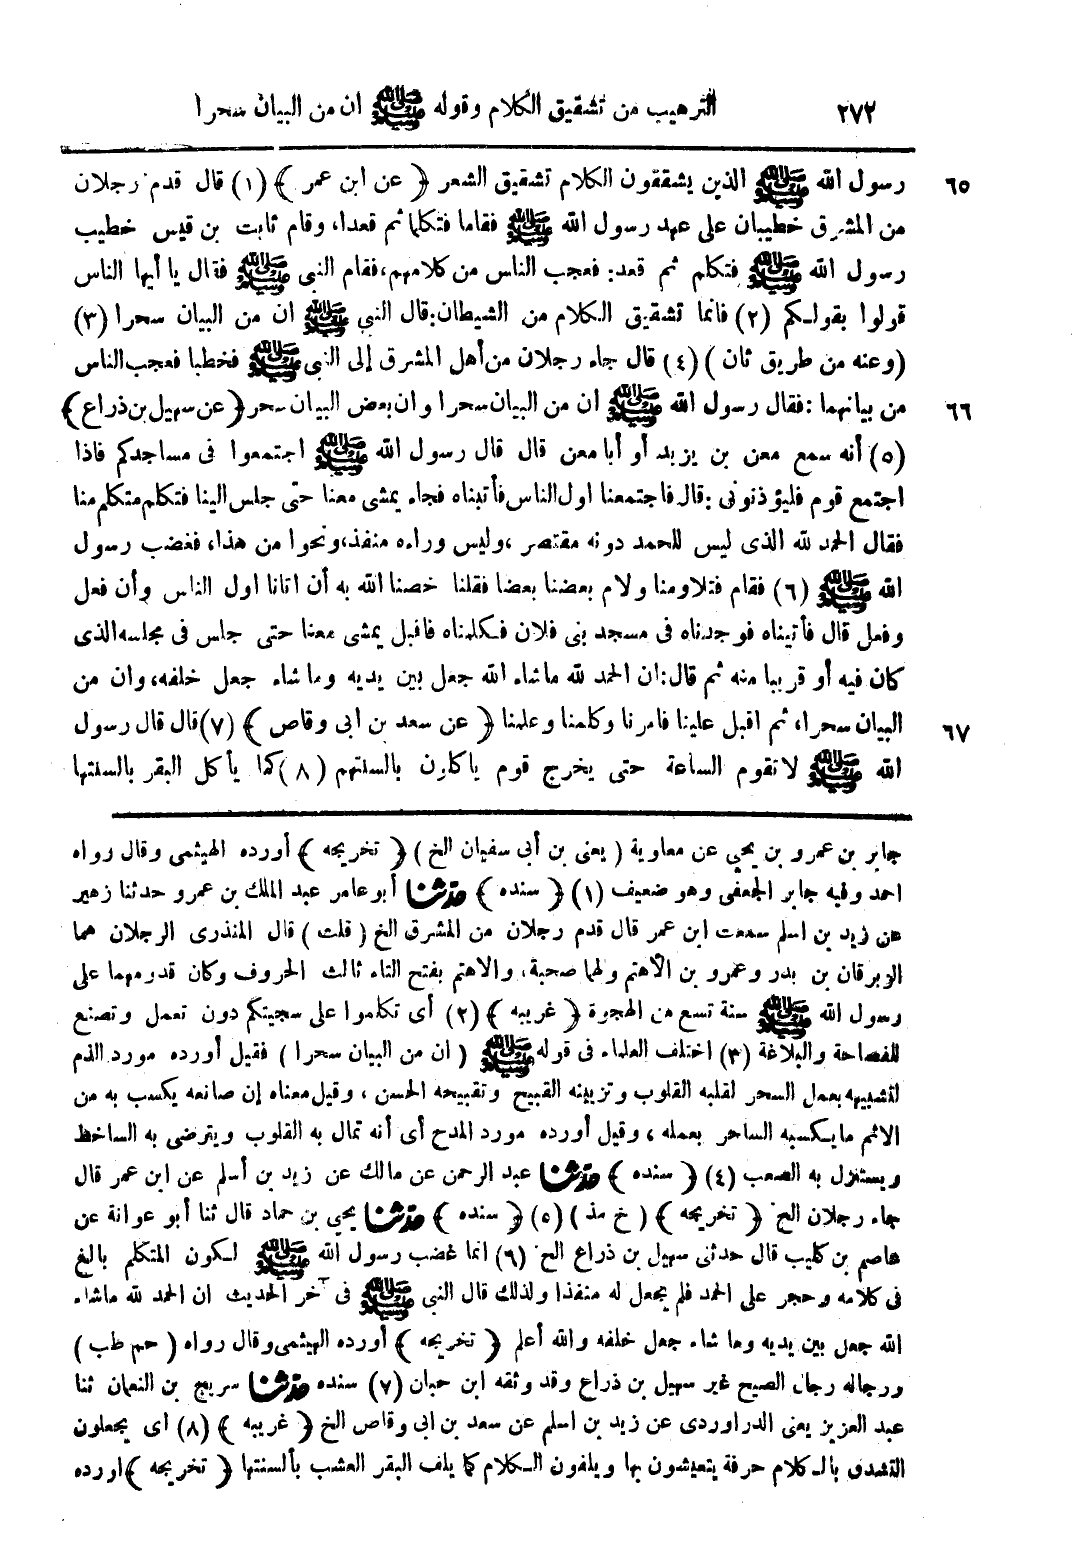 ٢٧٢ الترهيب من تشقيق الكلام وقوله ﷺ ان من البيان سحرا
٦٥ رسول الله ﷺ الذين يشققون الكلام تشقيق الشعر ﴿ عن ابن عمر ﴾ (١) قال قدم رجلان
من المشرق خطيبان على عهد رسول الله ﷺ فقاما فتكلما ثم قعدا، وقام ثابت بن قيس خطيب
رسول الله ﷺ فتكلم ثم قعد: فعجب الناس من كلامهم،فقام النبى ﷺ فقال يا أيها الناس
قولوا بقولكم (٢) فانما تشقيق الكلام من الشيطان:قال النبي ﷺ ان من البيان سحرا (٣)
(وعنه من طريق ثان ) (٤) قال جاء رجلان من أهل المشرق إلى النبى ﷺ فخطبا فعجب الناس
٦٦ من بيانهما :فقال رسول الله ﷺ ان من البيان سحرا وان بعض البيان سحر ﴿عن سهيل بن ذراع﴾
(٥) أنه سمع معن بن يزيد أو أبا معن قال قال رسول الله ﷺ اجتمعوا فى مساجدكم فاذا
اجتمع قوم فليؤذنونى :قال فاجتمعنا اول الناس فأتيناه فجاء يمشى معنا حتى جلس الينا فتكلم متكلم منا
فقال الحمد لله الذى ليس للحمد دونه مقتصر ،وليس وراءه منفذ،ونحوا من هذا، فغضب رسول
الله ﷺ (٦) فقام فتلاومنا ولام بعضنا بعضا فقلنا خصنا الله به أن اتانا اول الناس وأن فعل
وفعل قال فأتيناه فوجدناه فى مسجد بنى فلان فكلمناه فاقبل يمشى معنا حتى جلس فى مجلسه الذى
كان فيه أو قريبا منه ثم قال:ان الحمد لله ماشاء الله جعل بين يديه وما شاء جعل خلفه،وان من
٦٧ البيان سحرا، ثم اقبل علينا فامرنا وكلمنا وعلمنا ﴿ عن سعد بن ابى وقاص ﴾ (٧)قال قال رسول
الله ﷺ لا تقوم الساعة حتى يخرج قوم يأكلون بالسنتهم (٨) كما يأكل البقر بالسنتها
جابر بن عمرو بن يحيى عن معاوية ( يعنى بن أبى سفيان الخ ) ﴿ تخريجه ﴾ أورده الهيثمى وقال رواه
احمد وفيه جابر الجعفى وهو ضعيف (١) ﴿ سنده ﴾ حدثنا أبو عامر عبد الملك بن عمرو حدثنا زهير
عن زيد بن اسلم سمعت ابن عمر قال قدم رجلان من المشرق الخ ( قلت ) قال المنذرى الرجلان هما
الزبرقان بن بدر وعمرو بن الأهتم ولهما صحبة، والاهتم بفتح التاء ثالث الحروف وكان قدومهما على
رسول الله ﷺ سنة تسع من الهجرة ﴿ غريبه ﴾ (٢) أى تكلموا على سجيتكم دون تعمل وتصنع
للفصاحة والبلاغة (٣) اختلف العلماء فى قوله ﷺ ( ان من البيان سحرا ) فقيل أورده مورد الذم
لتشبيهه بعمل السحر لقلبه القلوب وتزيينه القبيح وتقبيحه الحسن ، وقيل معناه إن صانعه يكسب به من
الاثم ما يكسبه الساحر بعمله ، وقيل أورده مورد المدح أى أنه تمال به القلوب ويترضى به الساخط
ويستنزل به الصعب (٤) ﴿ سنده ﴾ حدثنا عبد الرحمن عن مالك عن زيد بن أسلم عن ابن عمر قال
جاء رجلان الخ ﴿ تخريجه ﴾ ( خ مذ ) (٥) ﴿ سنده ﴾ حدثنا يحيى بن حماد قال ثنا أبو عوانة عن
عاصم بن كليب قال حدثنى سهيل بن ذراع الخ (٦) انما غضب رسول الله ﷺ لكون المتكلم بالغ
فى كلامه وحجر على الحمد فلم يجعل له منفذا ولذلك قال النبى ﷺ فى آخر الحديث ان الحمد لله ماشاء
الله جعل بين يديه وما شاء جعل خلفه والله أعلم ﴿ تخريجه ﴾ أورده الهيثمى وقال رواه ( حم طب )
ورجاله رجال الصحيح غير سهيل بن ذراع وقد وثقه ابن حبان (٧) سنده حدثنا سريج بن النعمان ثنا
عبد العزيز يعنى الدراوردى عن زيد بن اسلم عن سعد بن ابى وقاص الخ ﴿ غريبه ﴾ (٨) اى يجعلون
التشدق بالكلام حرفة يتعيشون بها ويلفون الكلام كما يلف البقر العشب بألسنتها ﴿ تخريجه ﴾ اورده